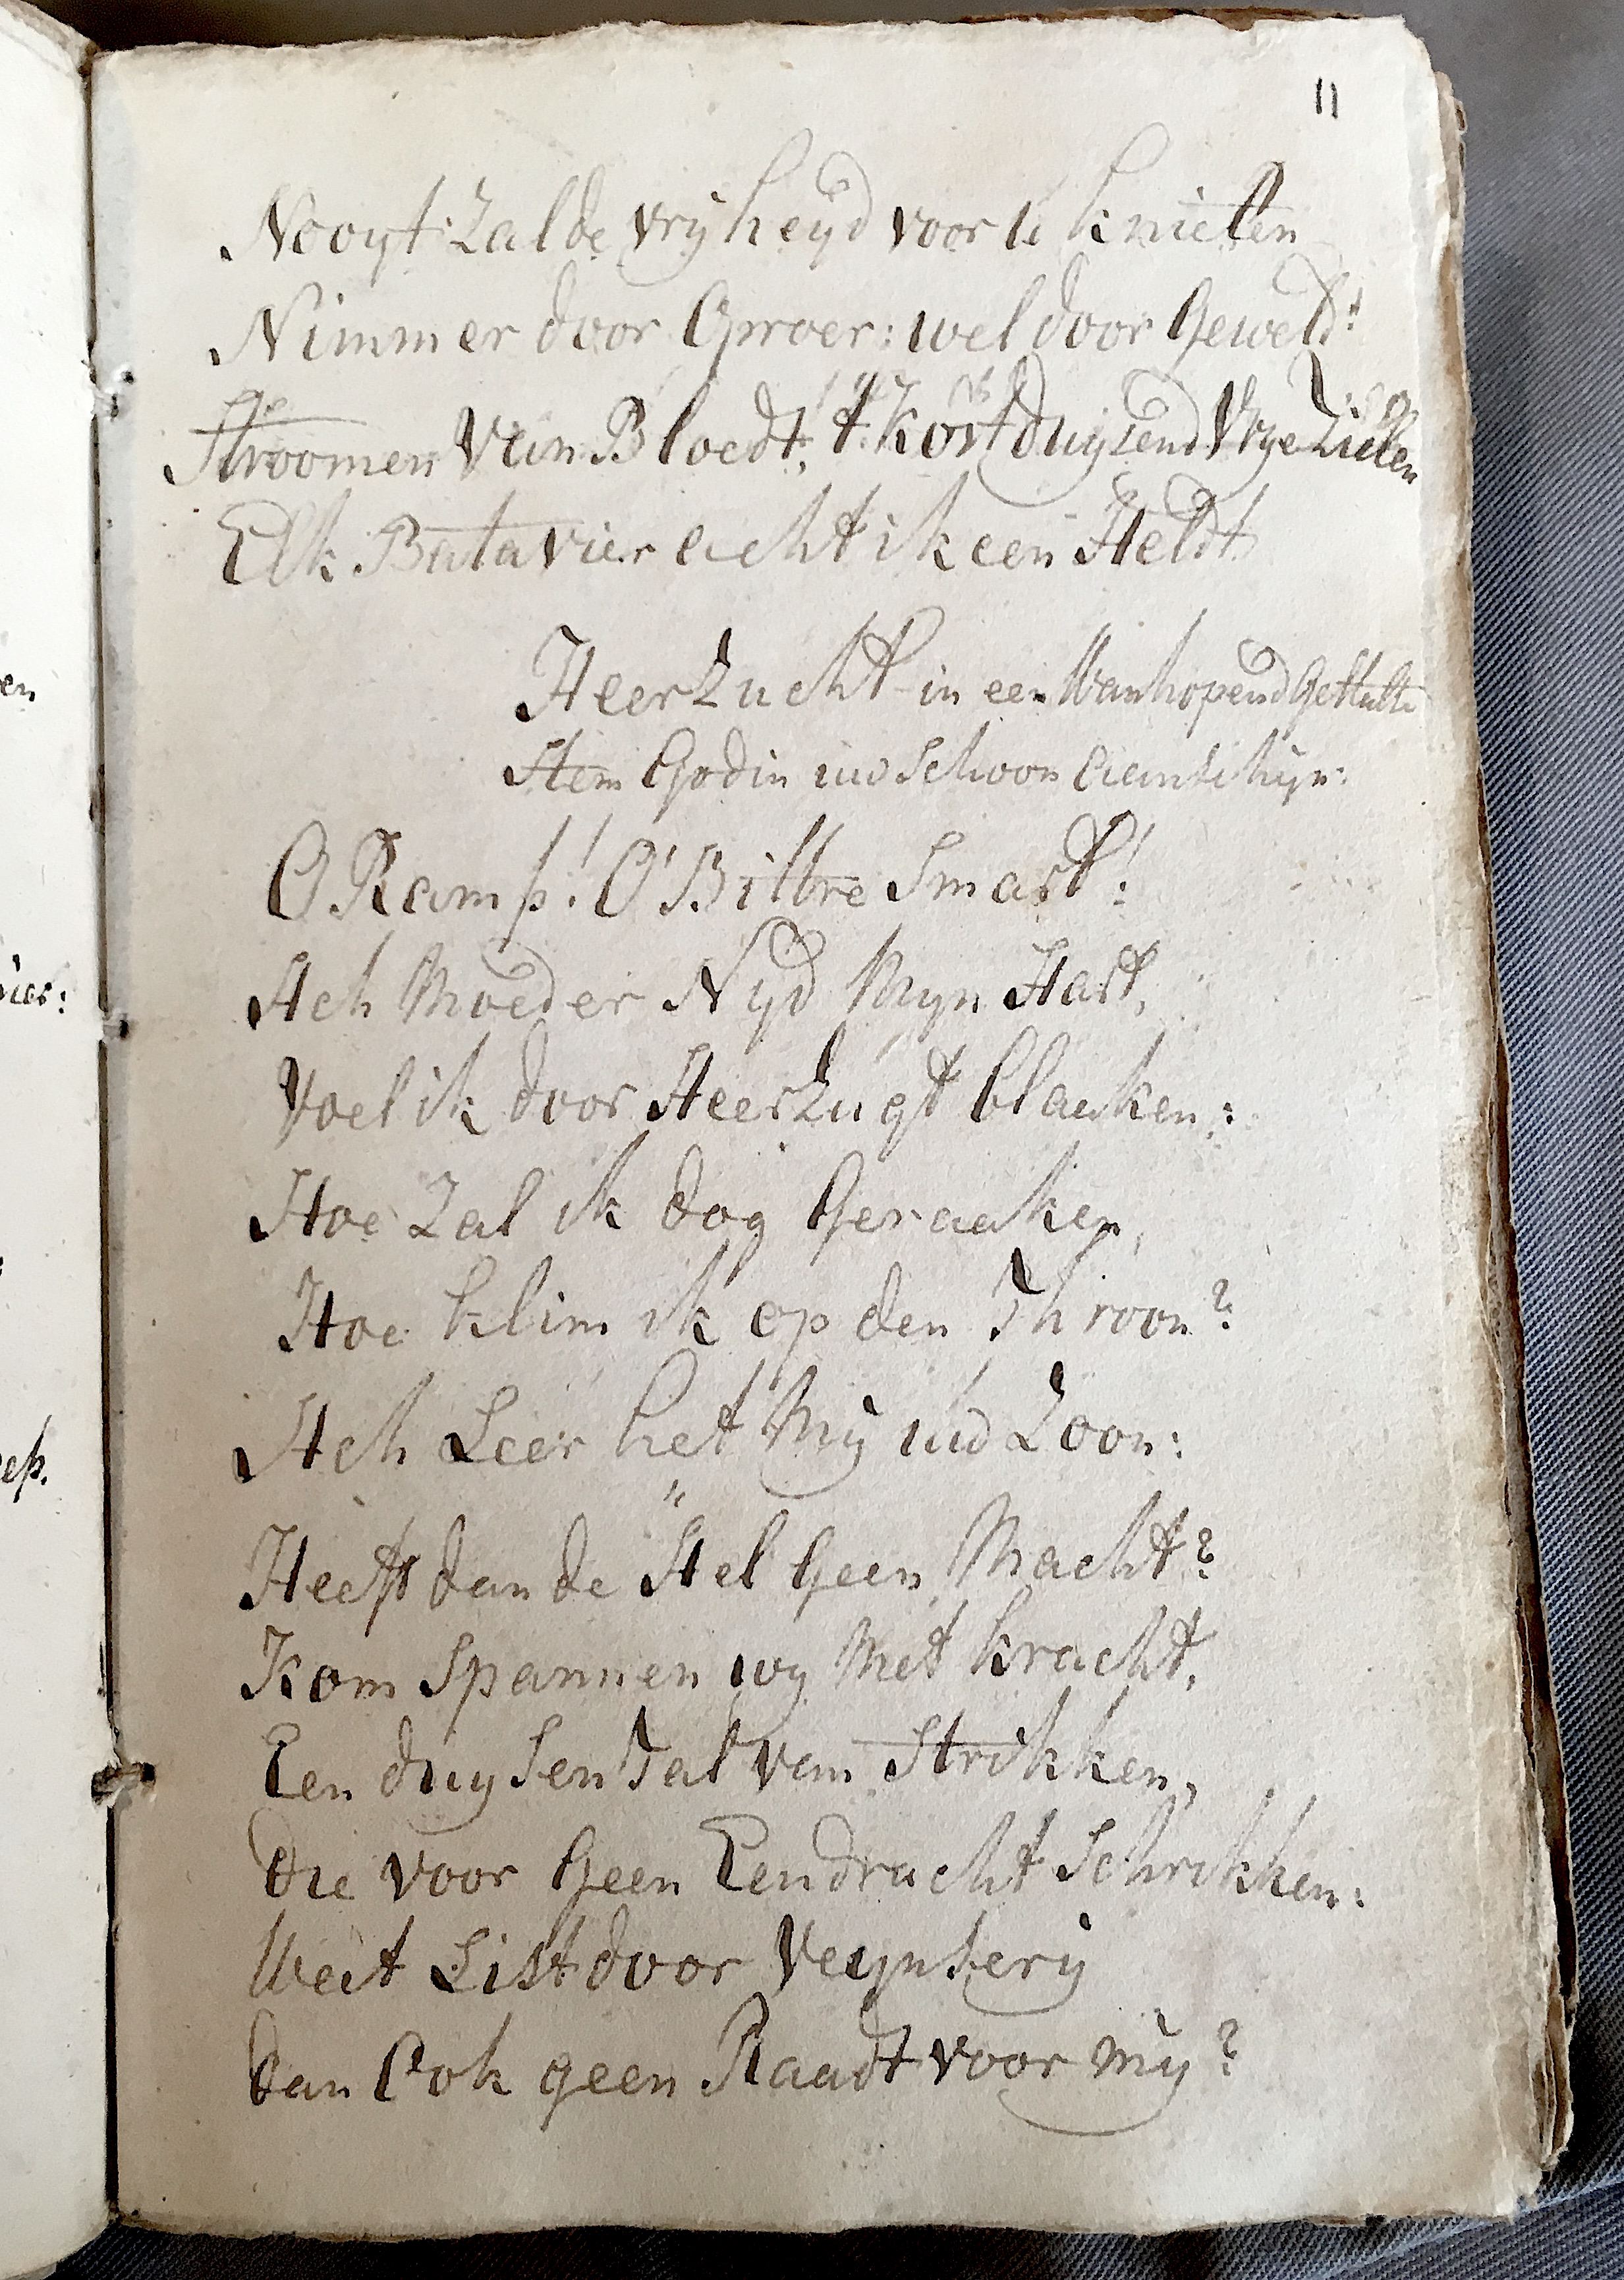 11
Nooyt Zal de vrijheyd voor U knielen
Nimmer door Oproer: wel door Geweld:
Stroomen Van Bloedt, 't kost duysend Vrye Zielen
Elk Batavier acht ik een Heldt
Heerzucht in een Wanhopend Gestalte
Stem Godin uw Schoon Aenschijn:
O Ramp! O Bittre Smart!
Ach Moeder Nyd Myn Hart,
Voel ik door Heerzugt blaaken:
Hoe Zal ik dog Geraaken,
Hoe klim ik op den Throon?
Ach Leer het Mij uw Zoon:
Heeft dan de Hel Geen Macht?
Kom Spannen wy Met kracht,
Een duysental van Strikken,
Die voor Geen Eendracht Schrikken:
Weet List door Veynsery
dan Ook geen Raadt voor mij?
en
ues: